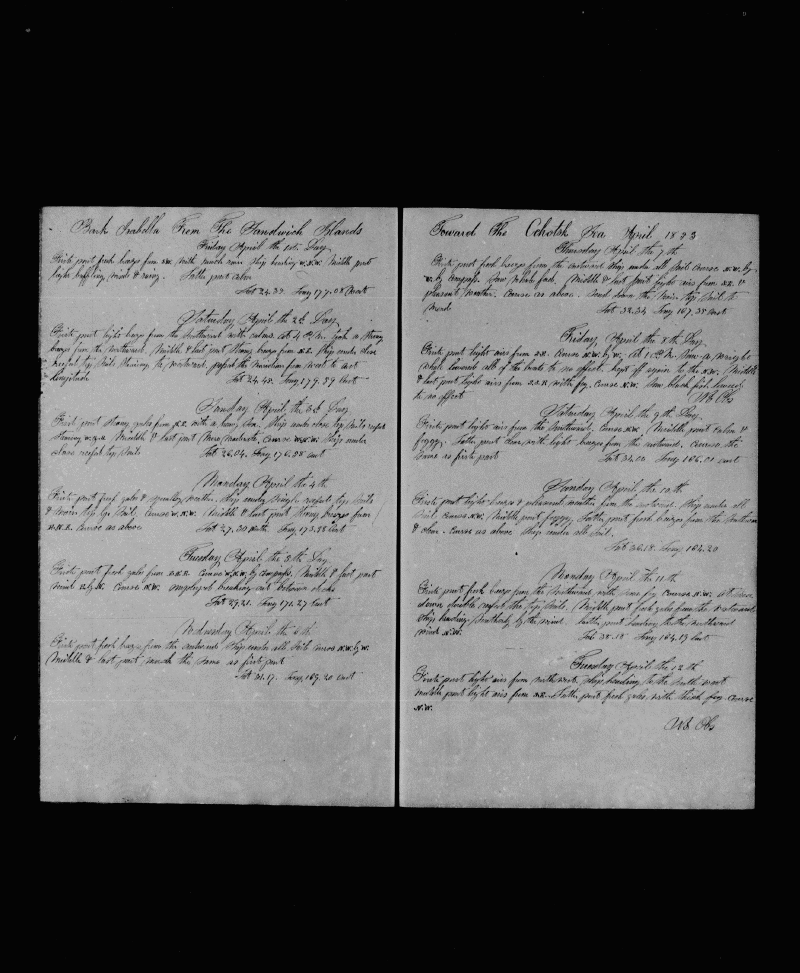 Bark Isabella From The Sandwich Islands
Friday April the 1st. Day
Firste part fresh breeze from with much rain Ship heading W.N.W. Middle part
light baffling winds & rainy. Latter part calm
Lat 24.39. Long 177.08 West
Saturday April the 2d. Day
Firste part light breeze from the Southward with calms. At 4 P.M. took a strong
breeze from the northward. Middle & last part strong breeze from N.E. Ship under close
reefed top Sails Steering to westward. passed the Meridian from West to East
Longitude Lat 24.48. Long 179.59 East
Sunday April the 3d. Day
Firste part strong gales from N.E. with a heavy Sea. Ship under close top Sails reefed
Steering Middle & last part More Moderate. Course W.N.W. Ship under
close reefed top Sails Lat 26.04. Long 176.38 East
Monday April the 4th
Firste part fresh gales & squally weather. Ship under Single reefed top Sails
& main top Sail. Course W.N.W. Middle & last part strong breeze from
N.N.E. Course as above Lat 27.30 North Long 173.58 East
Tuesday April the 5th Day
Firste part fresh gales from N.N.E. Course by compass. Middle & last part
wind Course N.W. employed breaking out between decks
Lat 29.21. Long 171.27 East
Wednesday April the 6th
Firste part fresh breeze from the eastward Ship under all Sail Course N.W. by W.
Middle & last part much the same as first part
Lat 31.17. Long 169.20 East
Toward The Ochotsk Sea April 1853
Thursday April the 7th
Firste part fresh breeze from the eastward Ship under all Sail Course N.W. by
W. by compass. Saw whale feed. Middle & last part light airs from &
pleasant weather. Course as above. Send down the Main top Sail to
Mend Lat 32.34 Long 167.38 East
Friday April the 8th Day
Firste part light airs from S.E. Course N.W. by W. At 1 P.M. Saw a wright
whale lowered all of the boats to no effect. kept off again to the N.W. Middle
& last part light airs from S.S.E. with fog. Course N.W. Saw black fish lowered
to no effect No Obs
Saturday April the 9th Day
Firste part light airs from the Southward. Course N.W. Middle part calm &
foggy. Latter part clear with light breeze from the eastward. Course the
Same as firste part Lat 34.00 Long 166.01 East
Sunday April the 10th
Firste part light breeze & pleasant weather from the eastward Ship under all
Sail. Course N.W. Middle part foggy. Latter part fresh breeze from the Southern
& clear. Course as above Ship under all Sail.
Lat 36.18. Long 164.20
Monday April the 11th
Firste part fresh breeze from the Southward with some fog Course N.W. at
down double reefed the top Sails. Middle part fresh gales from the Westward.
Ship heading Northerly by the wind. Latter part heading to the northward
wind N.W. Lat 38.18 Long 164.19 East
Tuesday April the 12th
Firste part light airs from northwest. Ship heading to the South west
middle part light airs from Latter part fresh gales with thick fog. Course
N.W.
No Obs